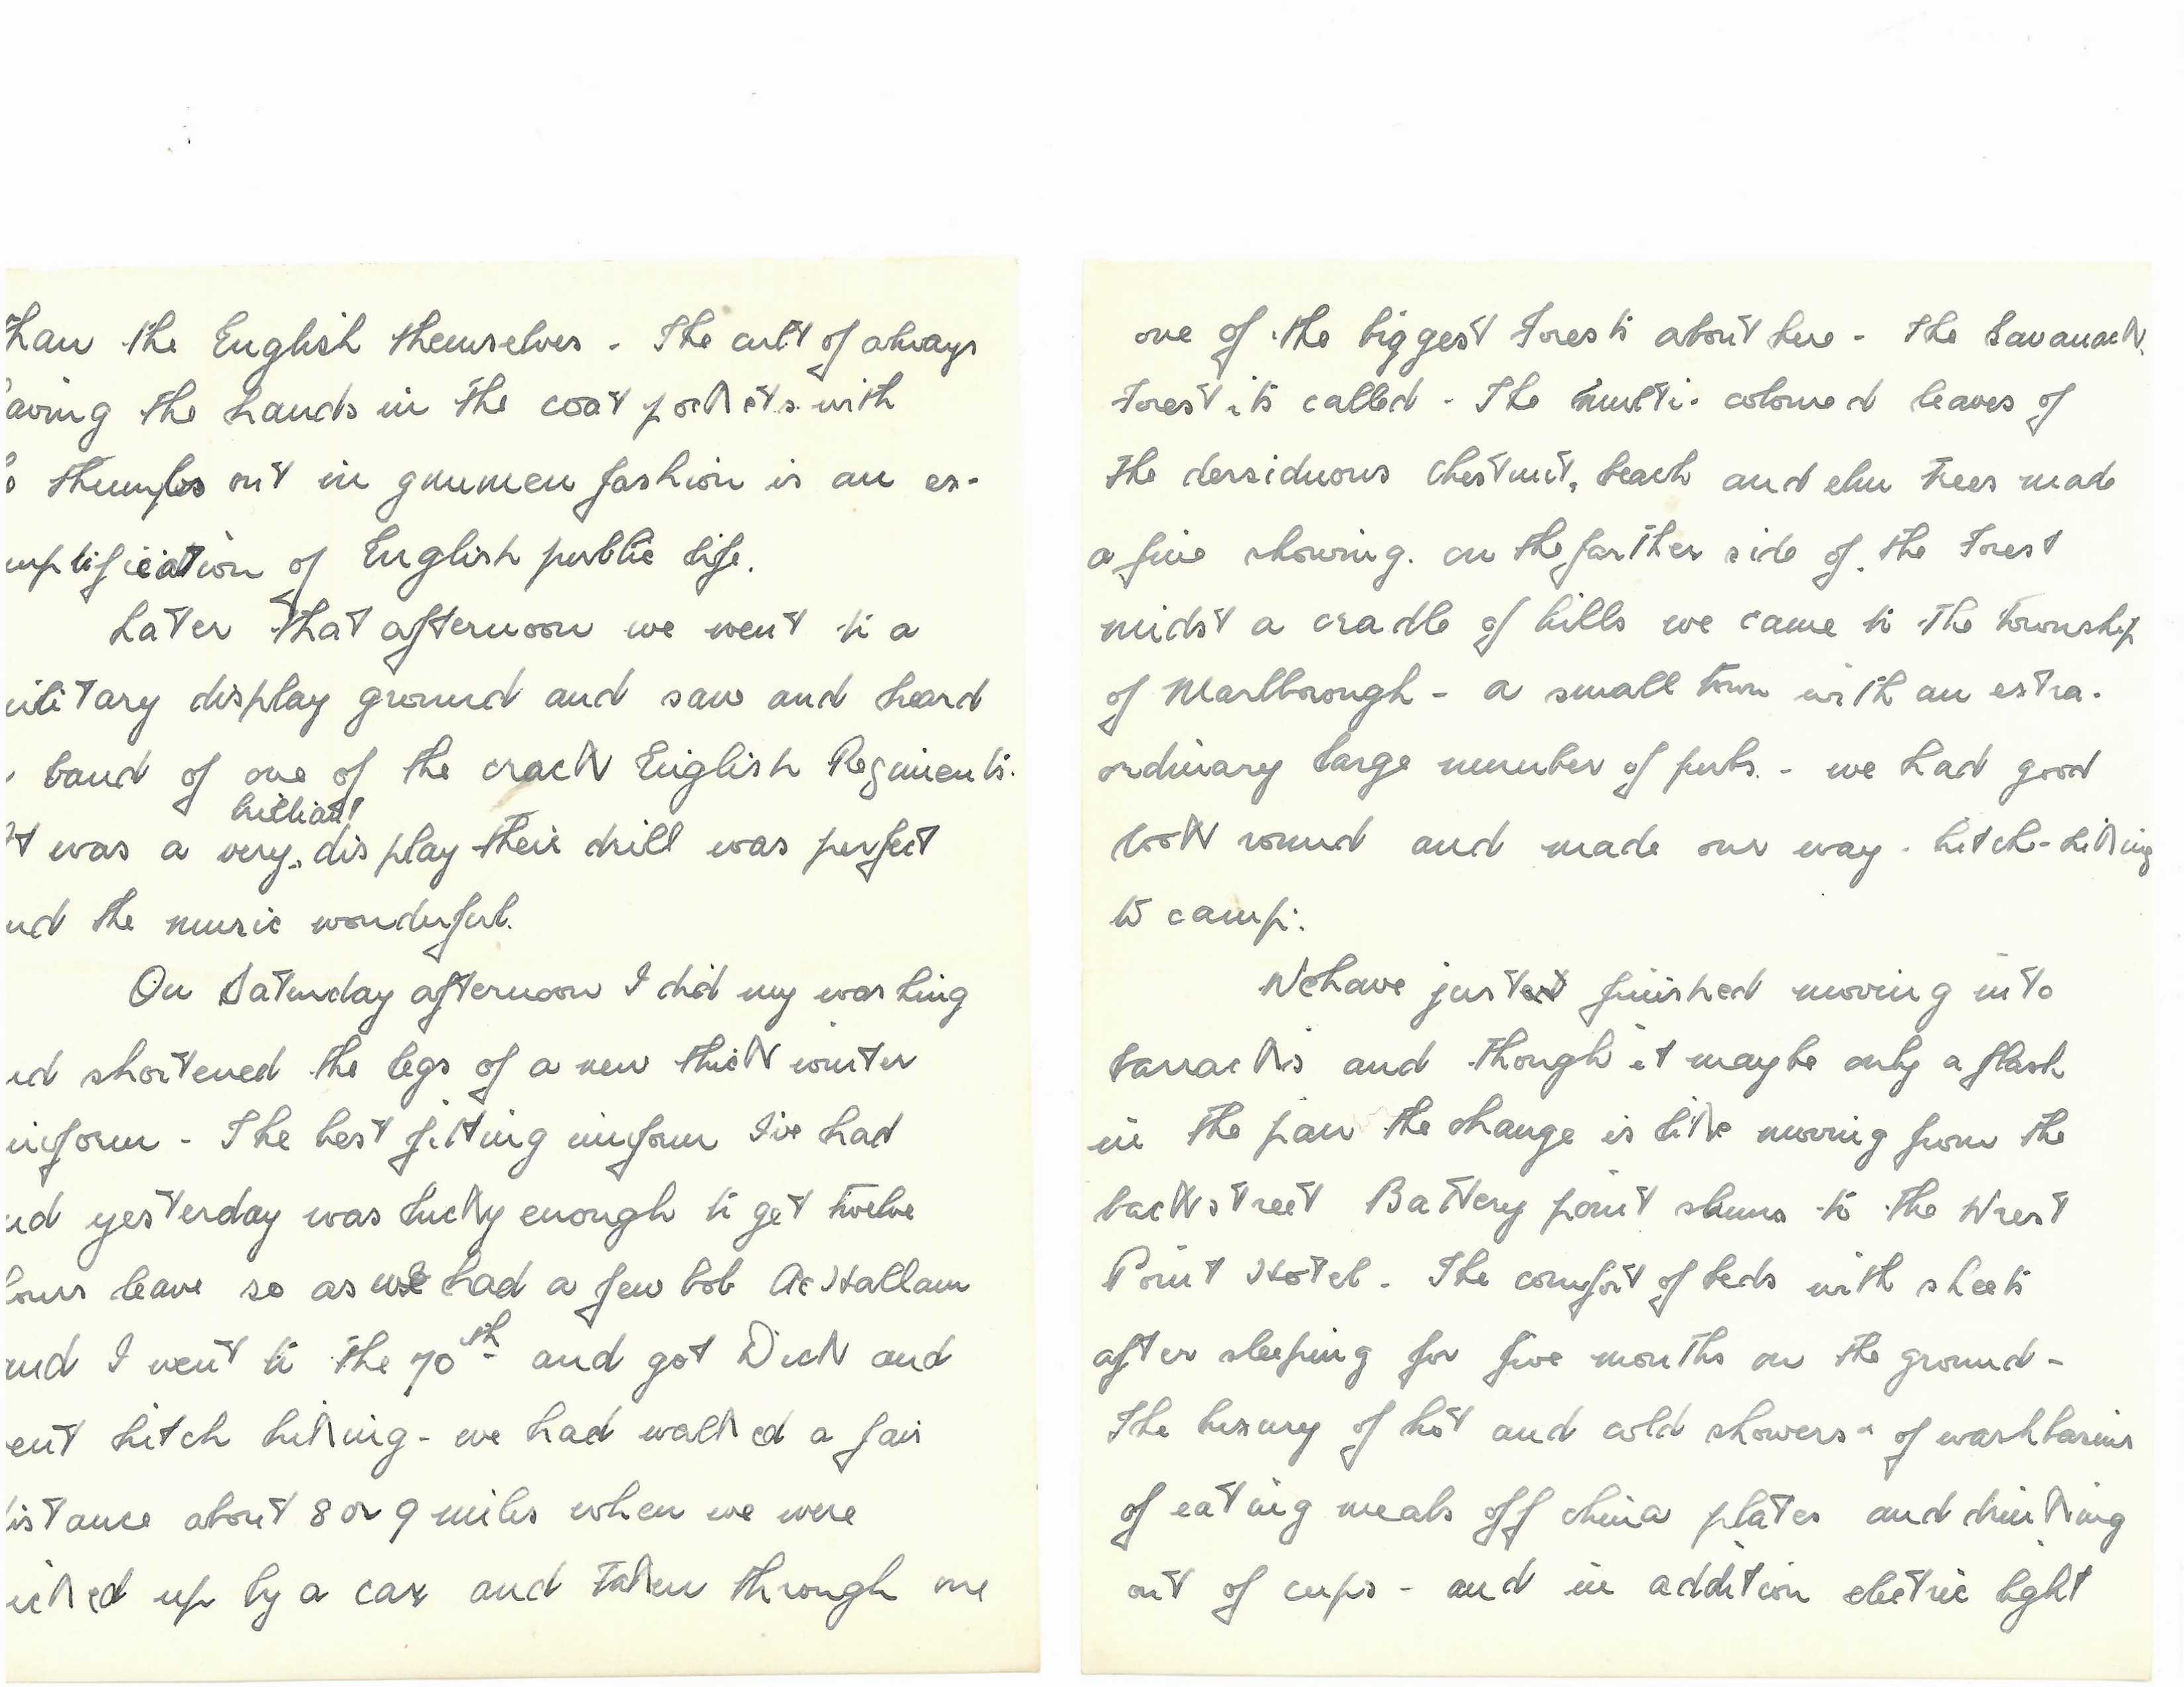 han the English themselves - The cult of always
aving the hands in the coat pockets with
thumbs out in gunmen fashion is an ex-
mplification of English public life.
Later that afternoon we went to a
ilitary display ground and saw and heard
band of one of the crack English Regiments.
brilliant
It was a very display their drill was perfect
nd the music wonderful.
On Saturday afternoon I did my washing
nd shortened the legs of a new thick winter
niform - The best fitting uniform I've had
nd yesterday was lucky enough to get twelve
hours leave so as we had a few bob Ac Hallam
and I went to the 70th and got Dick and
ent hitch hiking - we had walked a fair
distance about 8 or 9 miles when we were
icked up by a car and taken through one
one of the biggest Forests about here - The Savanack
Forest its called - The multi-coloured leaves of
the dersiduous chestnut, beach and elm trees made
a fine showing. on the farther side of the Forest
midst a cradle of hills we came to the township
of Marlborough - a small town with an extra-
ordinary large number of pubs. - we had good
look round and made our way - hitch-hiking
to camp.
We have just finished moving into
barracks and though it maybe only a flash
in the pan the change is like moving from the
back street Battery point slums to the Wrest
Point Hotel. The comfort of beds with sheets
after sleeping for five months on the ground -
The luxury of hot and cold showers - of washbasins
of eating meals off china plates and drinking
out of cups - and in addition electric light